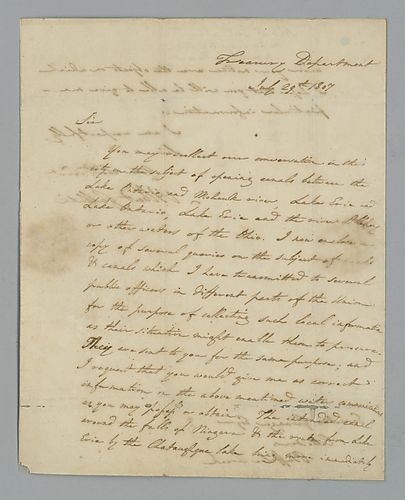 Treasury Department
July 29th 1807
Sir
You may recollect our conversation in this
city on the subject of opening canals between the
Lake Ontario and Mohawk river, Lake Erie and
Lake Ontario, Lake Erie and the river
or other waters of the Ohio. I now enclose a
copy of several queries on the subject of
& canals which I have transmitted to several
public officers in different parts of the Union
for the purpose of collecting such local information
as their situation might enable them to procure.
They are sent to you for the same purpose; and
I request that you would give me as correct
information on the above mentioned communications
as you may possess or obtain. The intended canal
around the falls of Niagara & the route from Lake
Erie by the Chataughque lake being more immediately